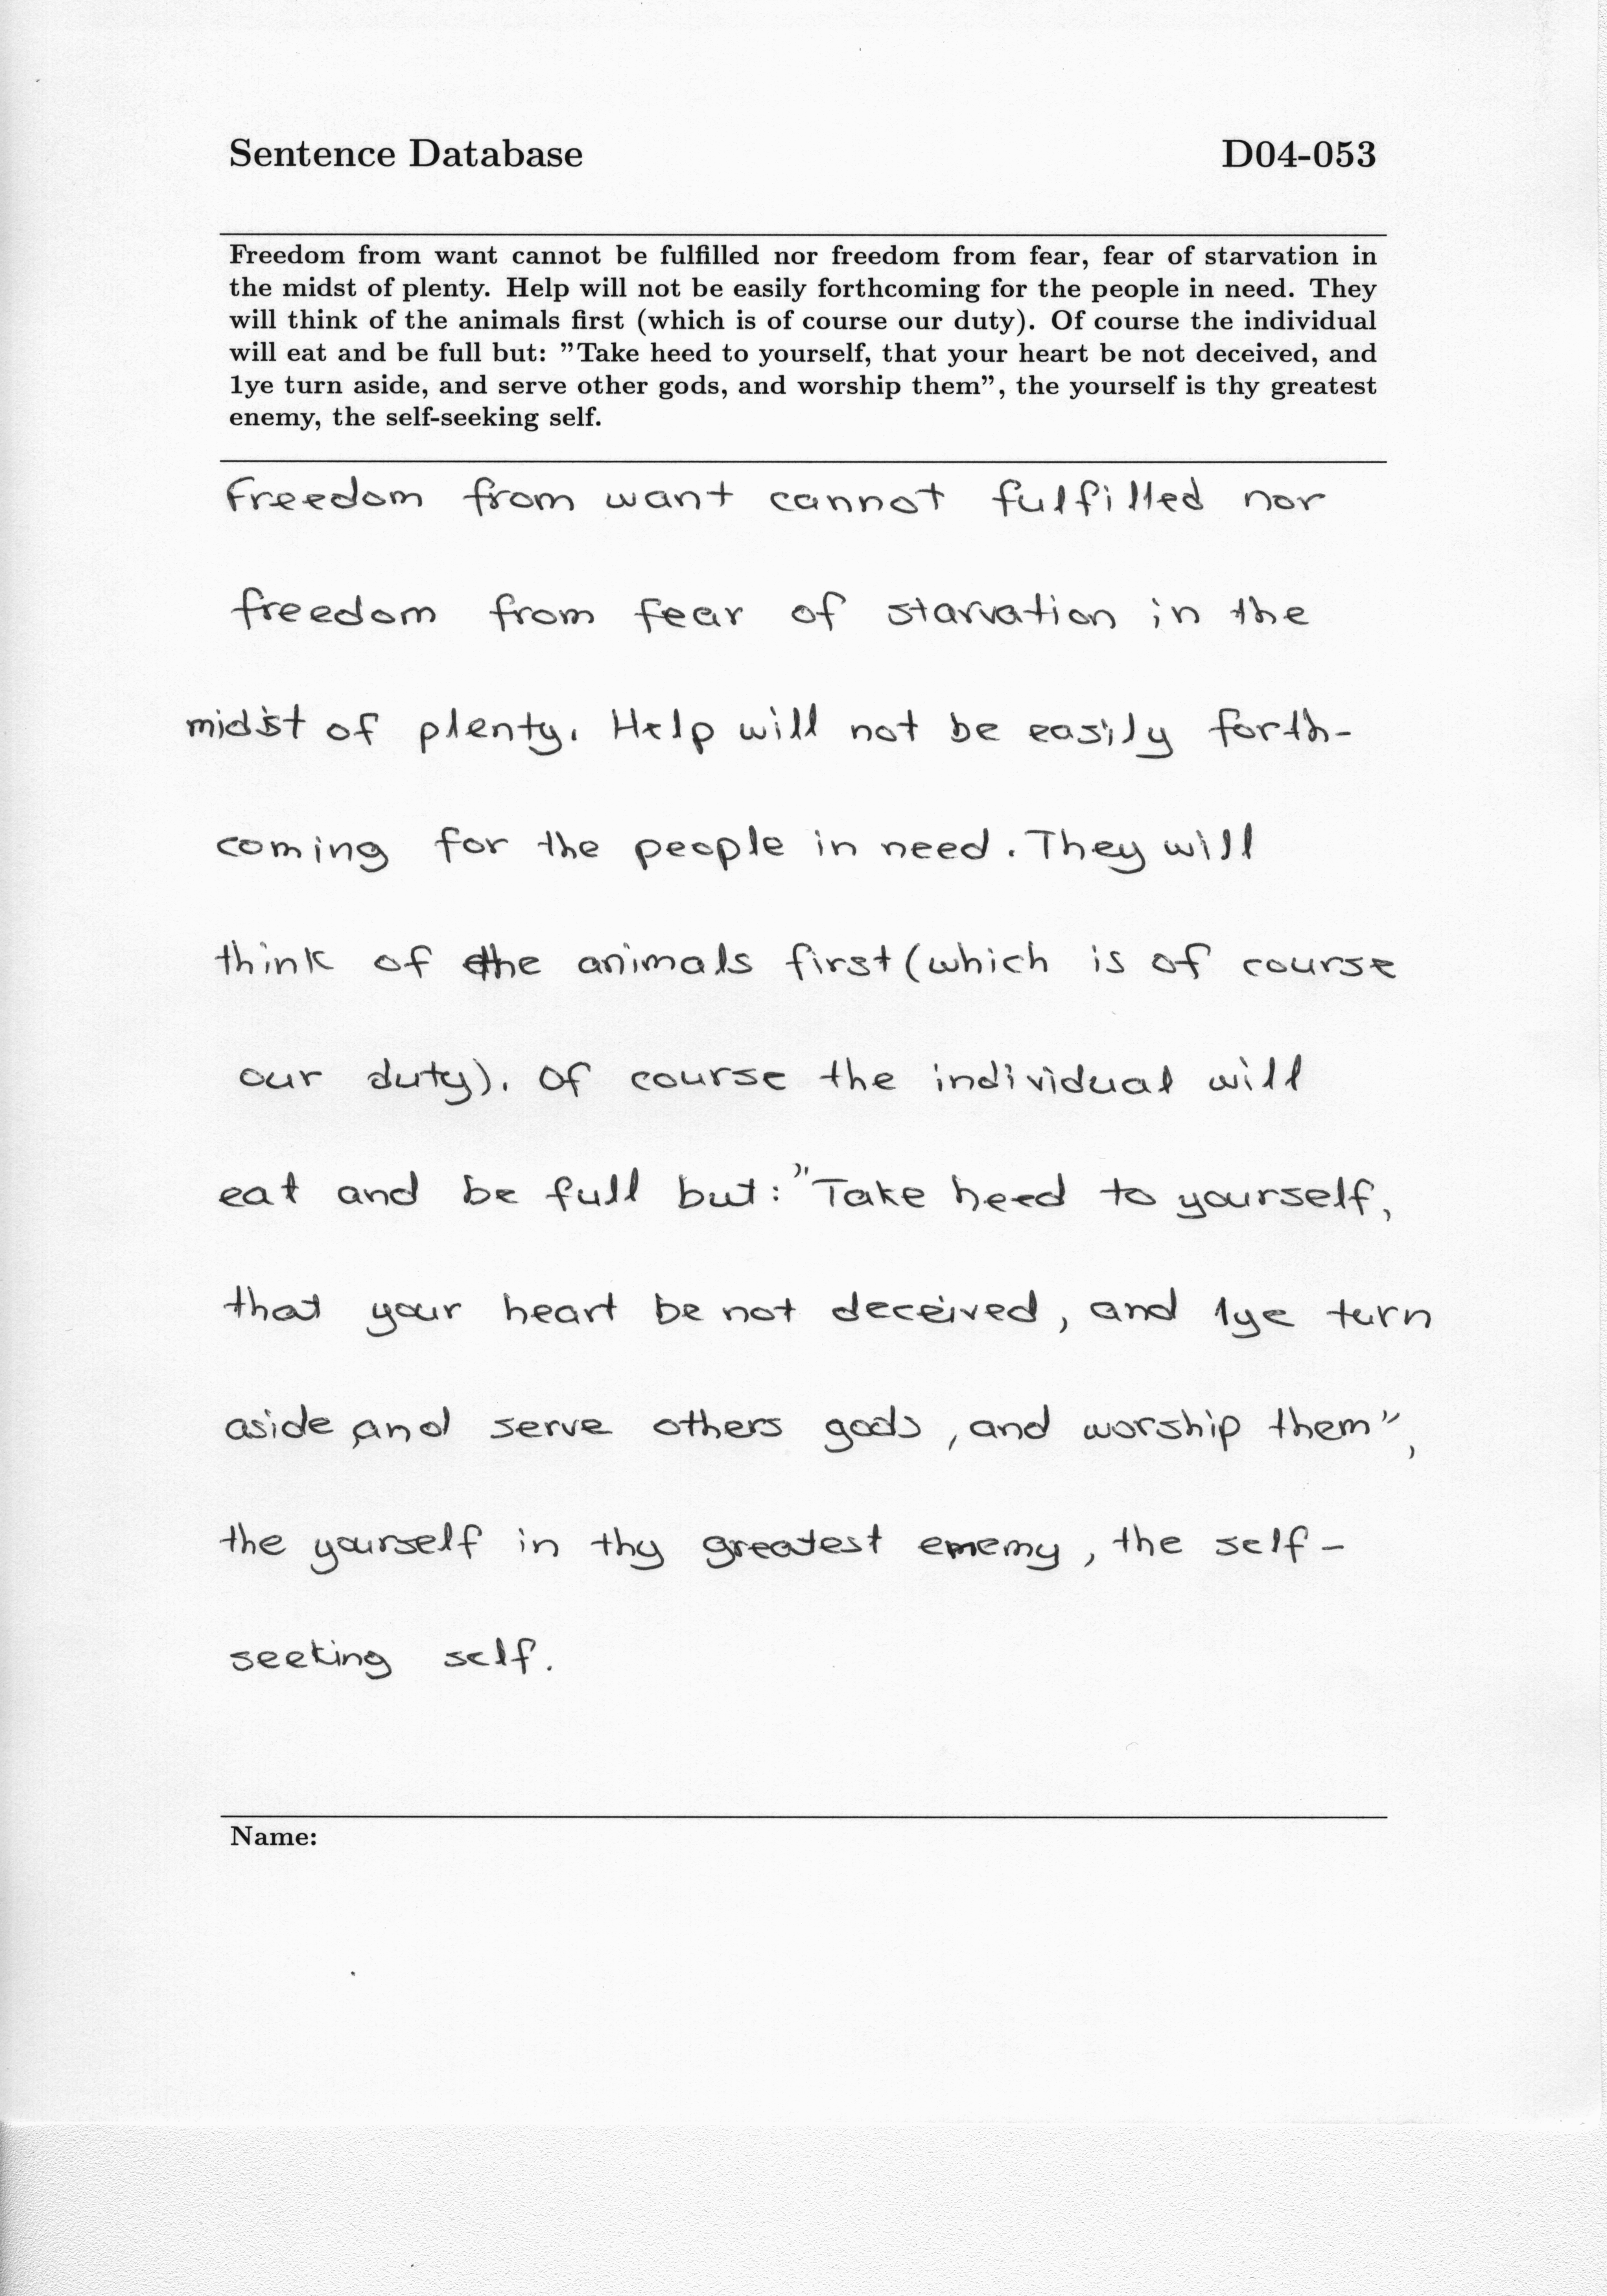 Sentence Database D04-053
Freedom from want cannot be fulfilled nor freedom from fear, fear of starvation in
the midst of plenty. Help will not be easily forthcoming for the people in need. They
will think of the animals first (which is of course our duty). Of course the individual
will eat and be full but: ”Take heed to yourself, that your heart be not deceived, and
1ye turn aside, and serve other gods, and worship them”, the yourself is thy greatest
enemy, the self-seeking self.
Freedom from want cannot fulfilled nor
freedom from fear of starvation in the
midist of plenty. Help will not be easily forth-
coming for the people in need. They will
think of the animals first (which is of course
our duty). Of course the individual will
eat and be full but: ”Take heed to yourself,
that your heart be not deceived, and 1ye turn
aside, and serve others gods, and worship them”,
the yourself in thy greatest ememy, the self-
seeking self.
Name: